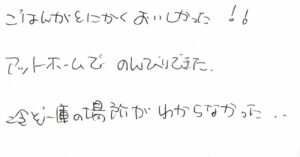 ごはんがとにかくおいしかった!!
アットホームで のんびりできた.
冷ぞー庫の場所がわからなかった..